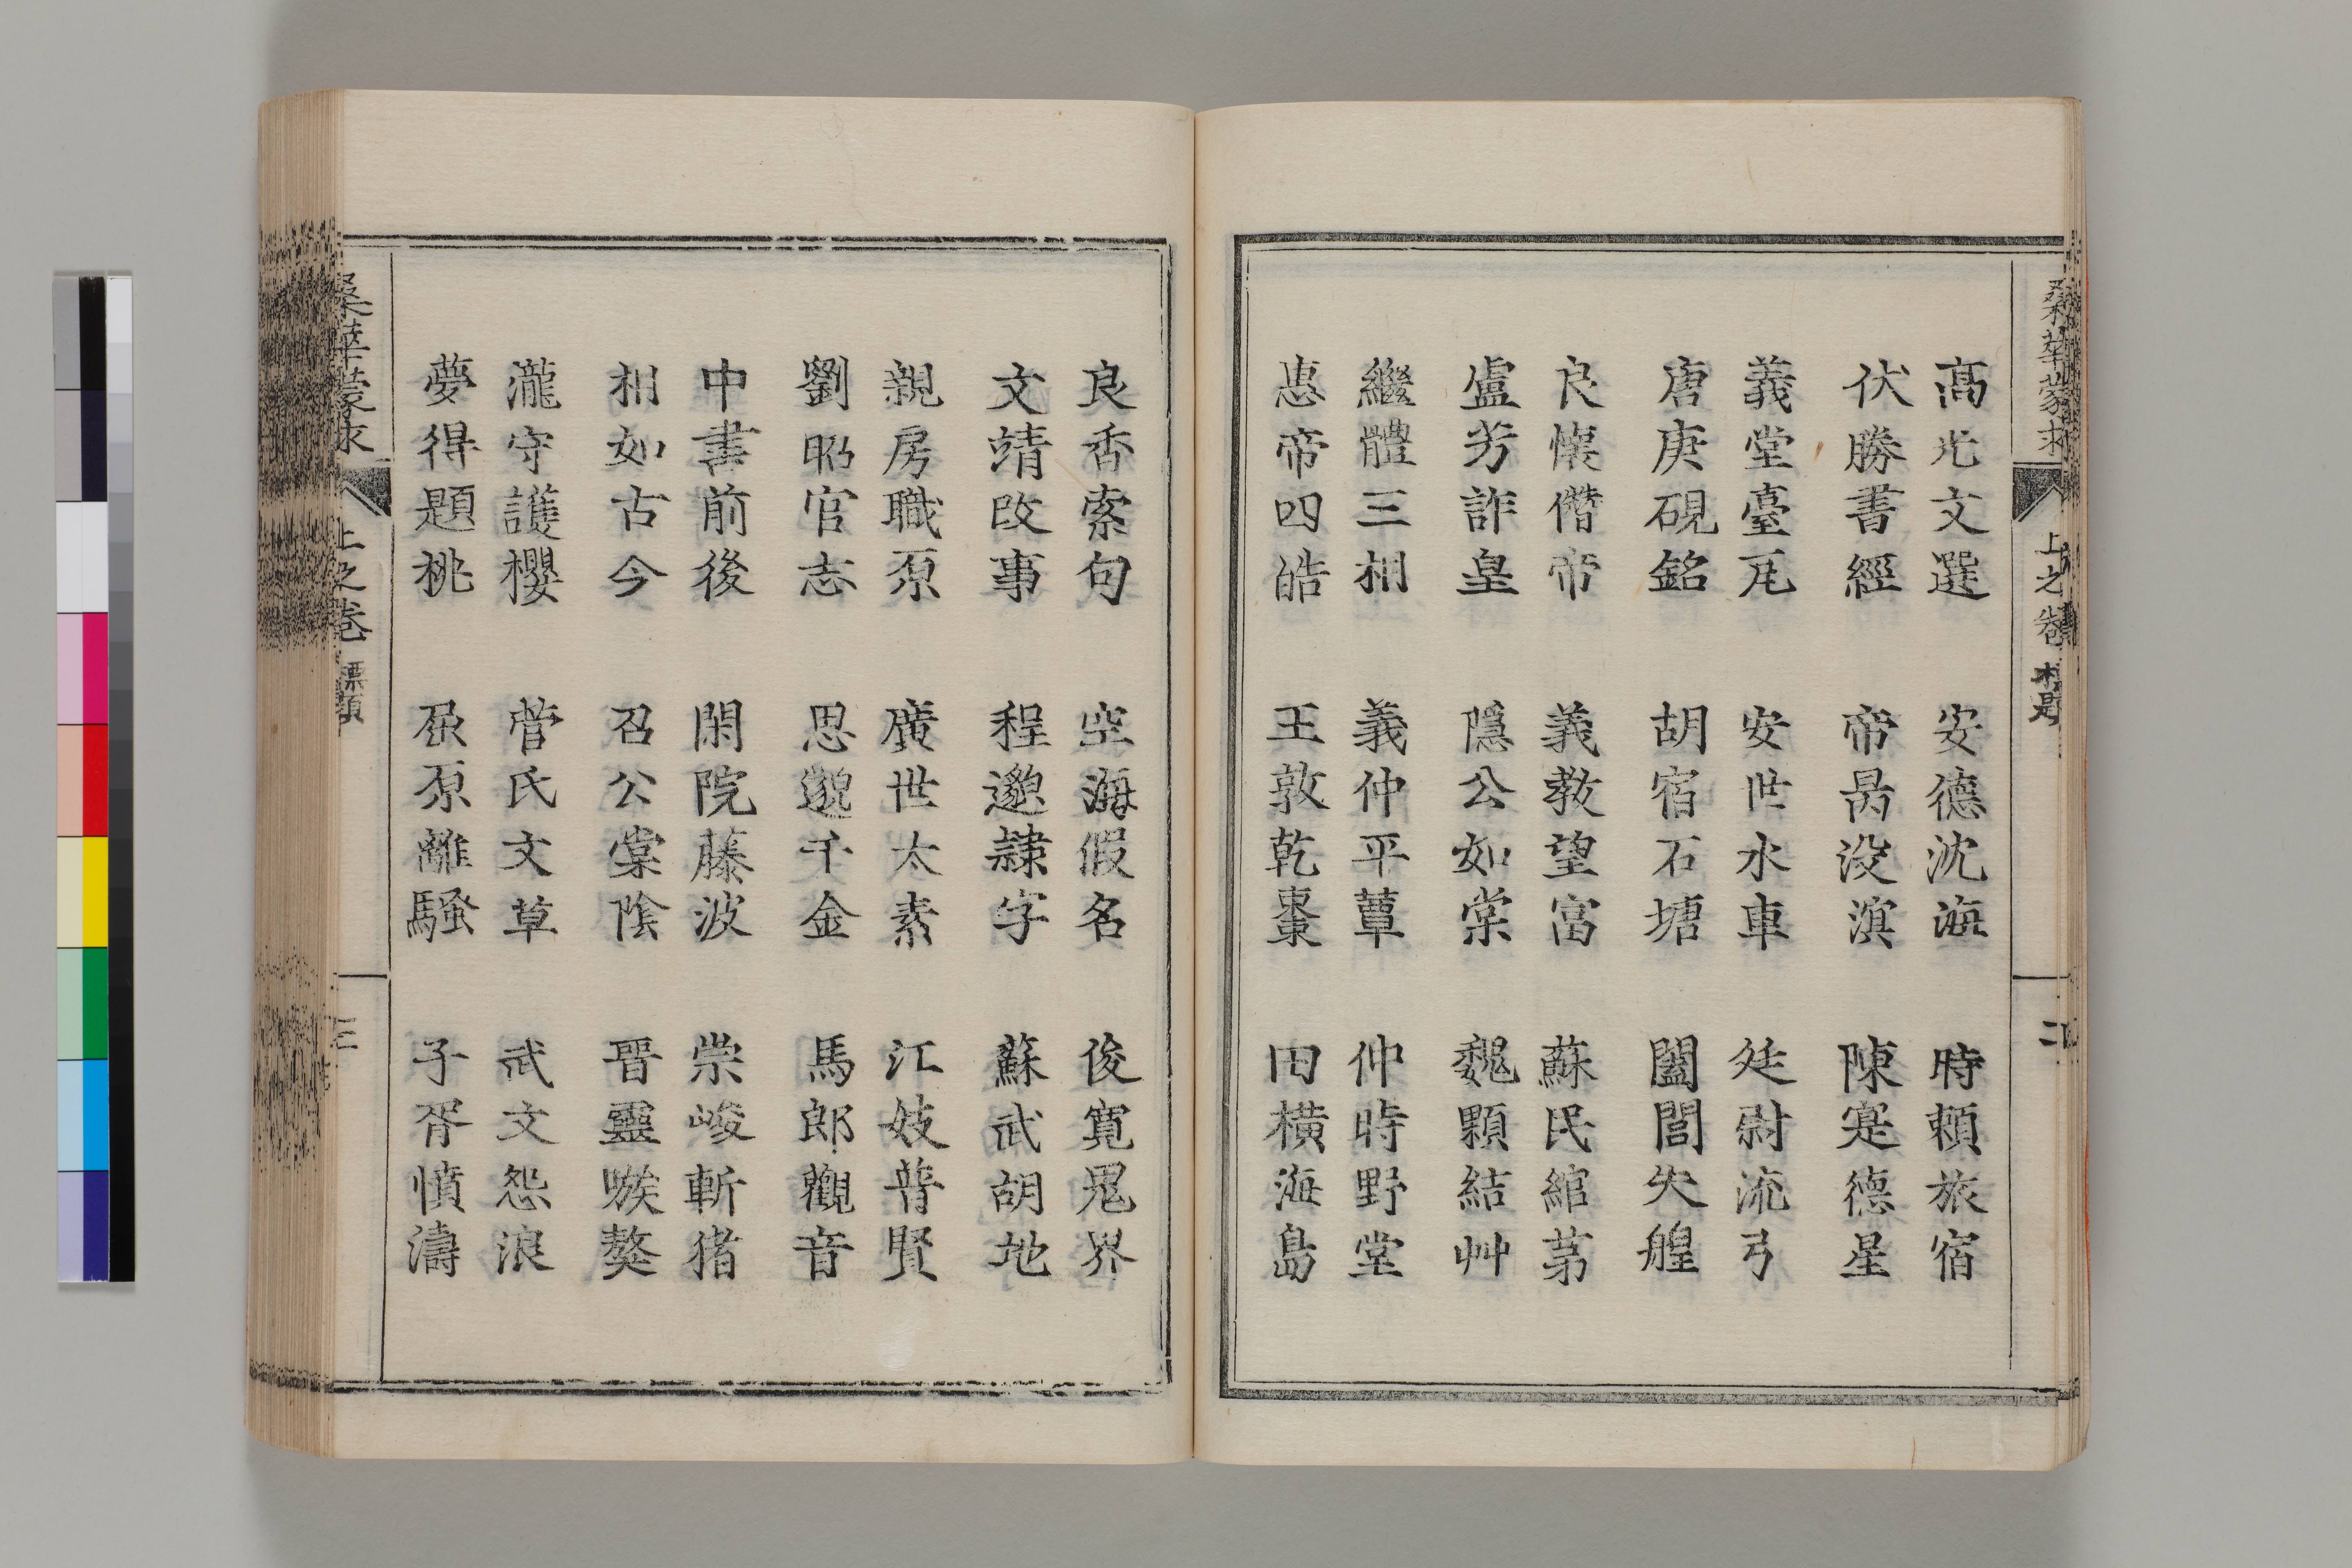 桑華蒙求 上之卷 標題 二
高光文選 安德沈海 時頼旅宿
伏勝書經 帝昺没溟 陳寔德星
義堂臺瓦 安世水車 廷尉流弓
唐庚硯銘 胡宿石塘 闔閭失艎
良懷僭帝 義教望富 蘇民綰茅
盧芳詐皇 隱公如棠 魏顆結艸
繼體三相 義仲平蕈 仲時野堂
惠帝四皓 王敦乾棗 田橫海島
良香索句 空海假名 俊寬鬼界
文靖改事 程邈隷字 蘇武胡地
親房職原 廣世太素 江妓普賢
劉昭官志 思邈千金 馬郎觀音
中書前後 閑院藤波 崇峻斬猪
相如古今 召公棠陰 晋靈嗾獒
瀧守護櫻 菅氏文草 武文怨浪
夢得題桃 屈原離騷 子胥憤濤
桑華蒙求 上之卷 標題 三